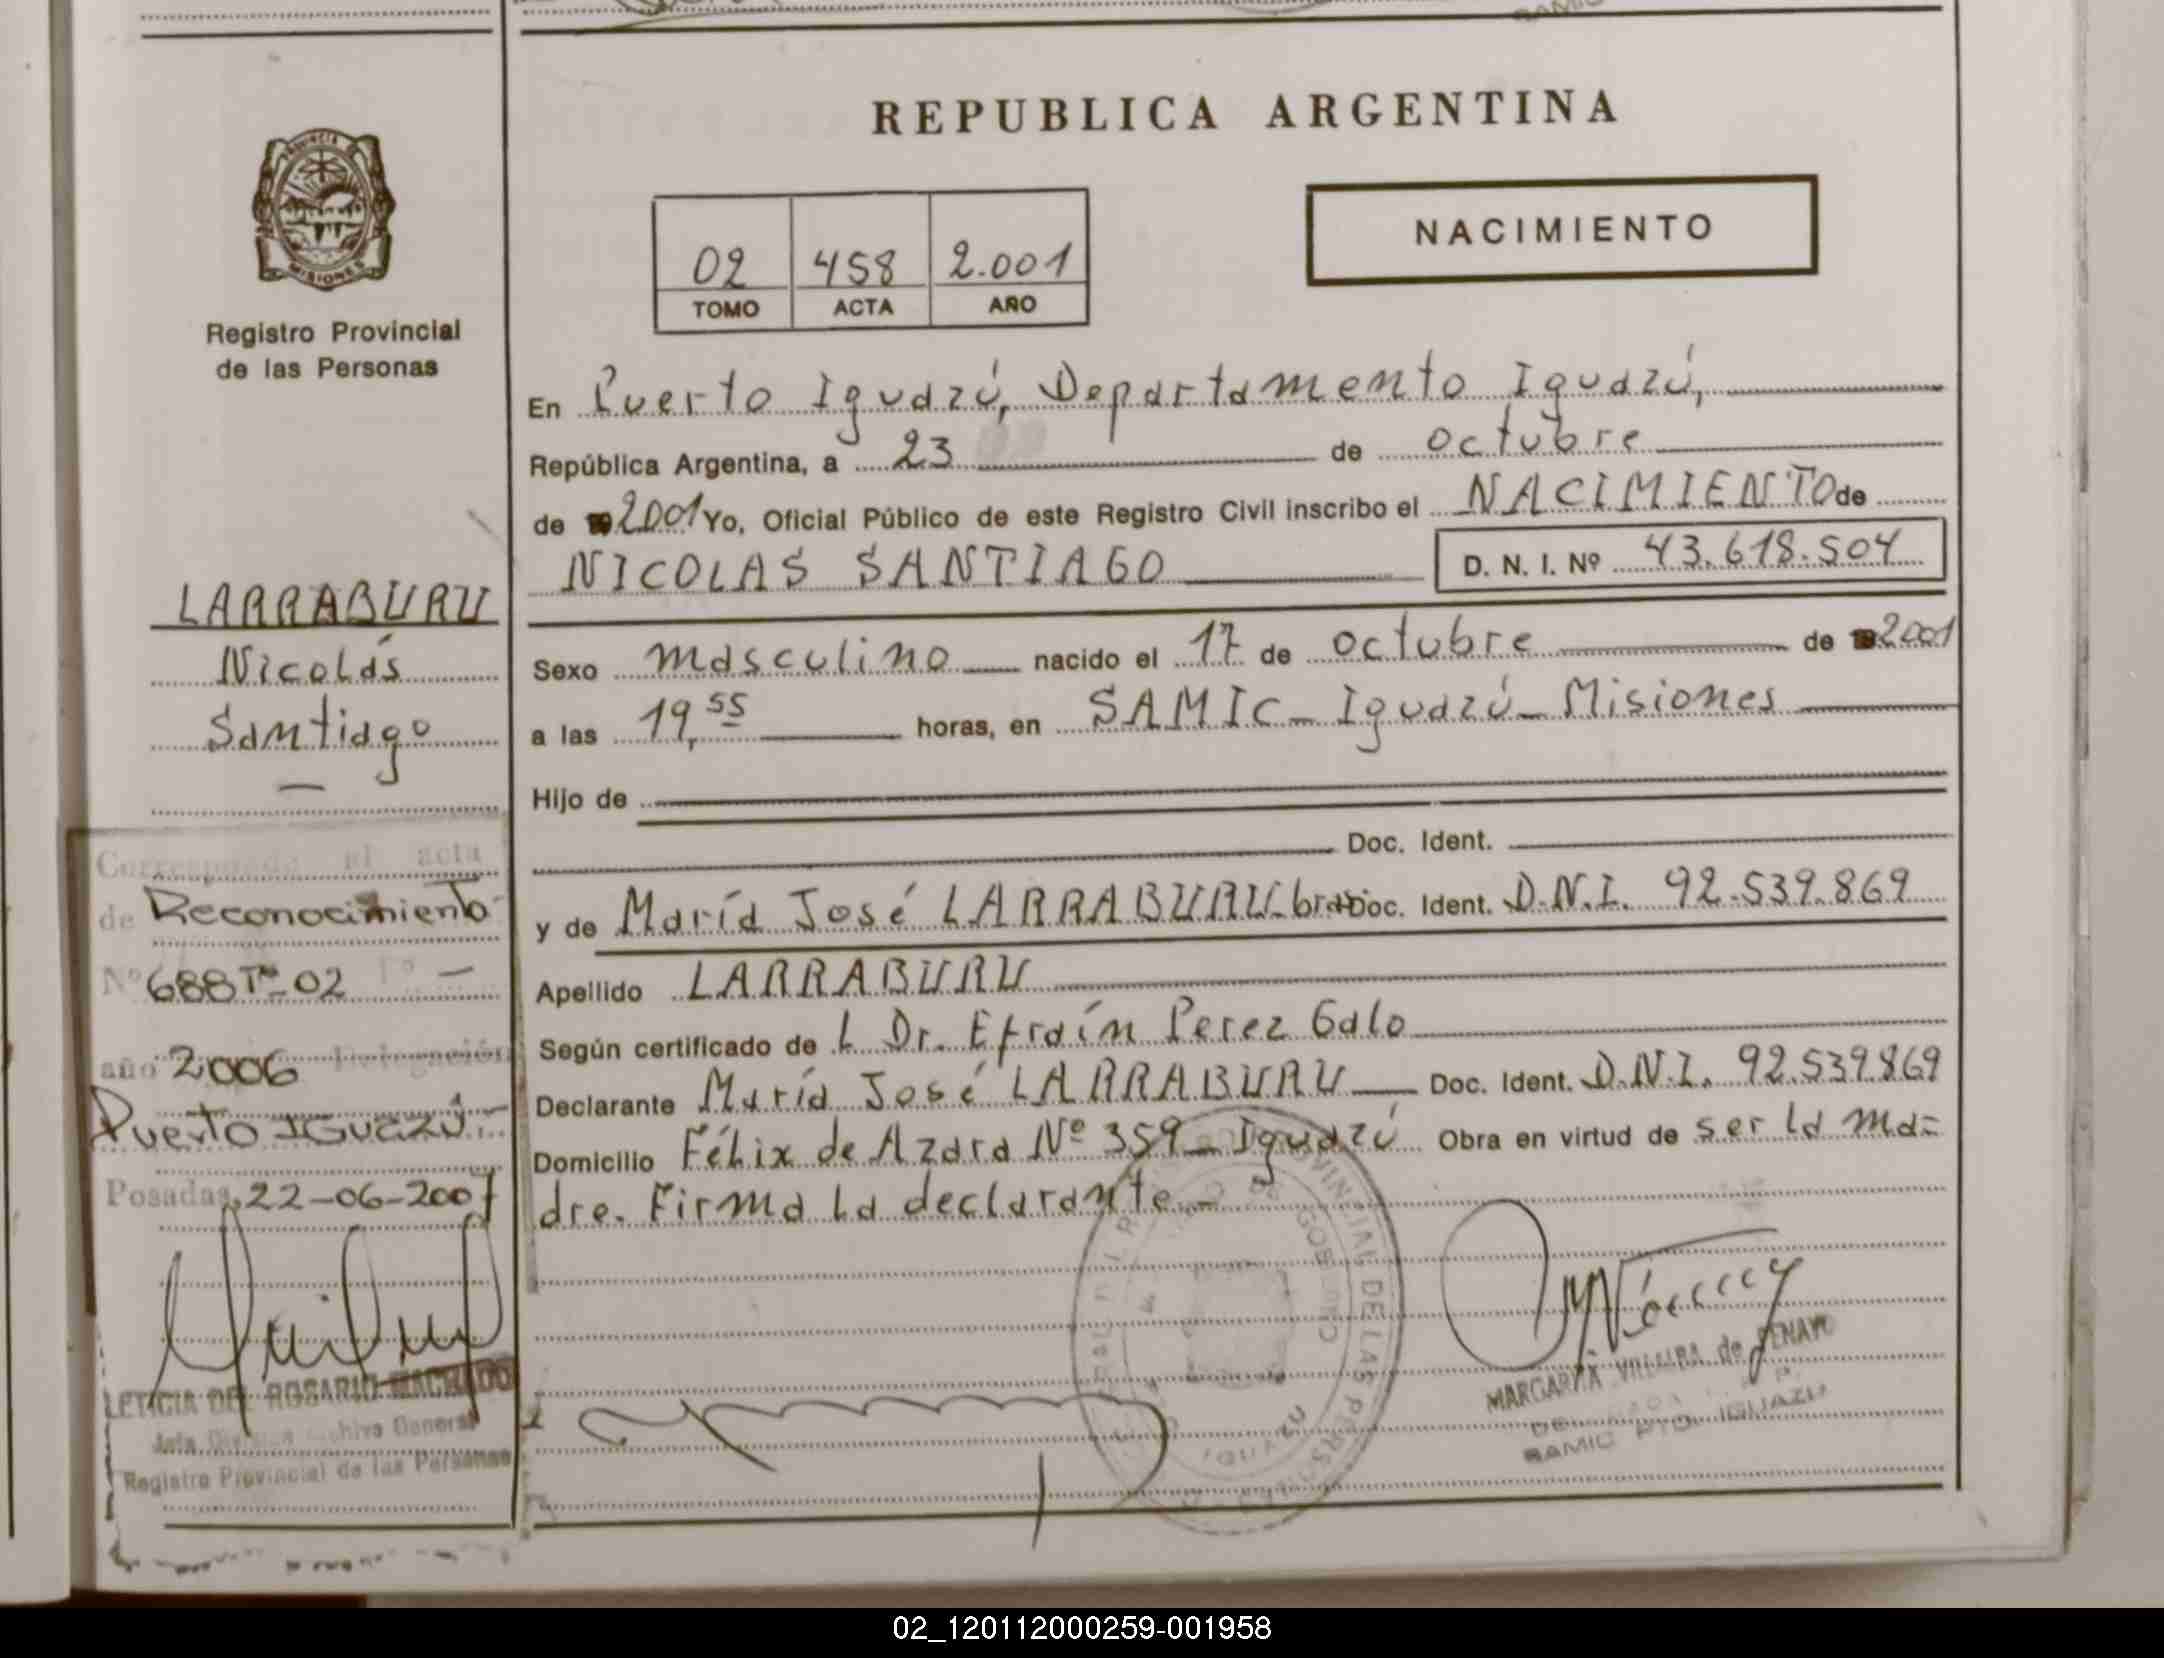 REPUBLICA ARGENTINA
NACIMIENTO
02 458 2.001
TOMO ACTA AÑO
PROVINCIA DE
MISIONES
Registro Provincial
de las Personas
LARRABURU
Nicolás
Santiago
Corresponde al acta
de Reconocimiento
Nº 688 Tº 02 Fº —
año 2006 Delegación
Puerto IGUAZÚ.-
Posadas, 22-06-2007
LETICIA DEL ROSARIO MACHADO
Jefa División Archivo General
Registro Provincial de las Personas
En Puerto Iguazú, Departamento Iguazú,
República Argentina, a 23 de octubre
de 2001 Yo, Oficial Público de este Registro Civil inscribo el NACIMIENTO de
NICOLAS SANTIAGO D. N. I. Nº 43.618.504
Sexo masculino nacido el 17 de octubre de 2001
a las 19,55 horas, en SAMIC_ Iguazú_ Misiones
Hijo de
Doc. Ident.
y de María José LARRABURU_bras Doc. Ident. D.N.I. 92.539.869
Apellido LARRABURU
Según certificado de L Dr. Efraín Perez Galo
Declarante María José LARRABURU Doc. Ident. D.N.I. 92.539.869
Domicilio Félix de Azara Nº 359_ Iguazú Obra en virtud de ser la ma=
dre. Firma la declarante.-
PROVINCIAL DE LAS PERSONAS
MARGARITA VILLALBA de
SAMIC PTO. IGUAZU
02_120112000259-001958